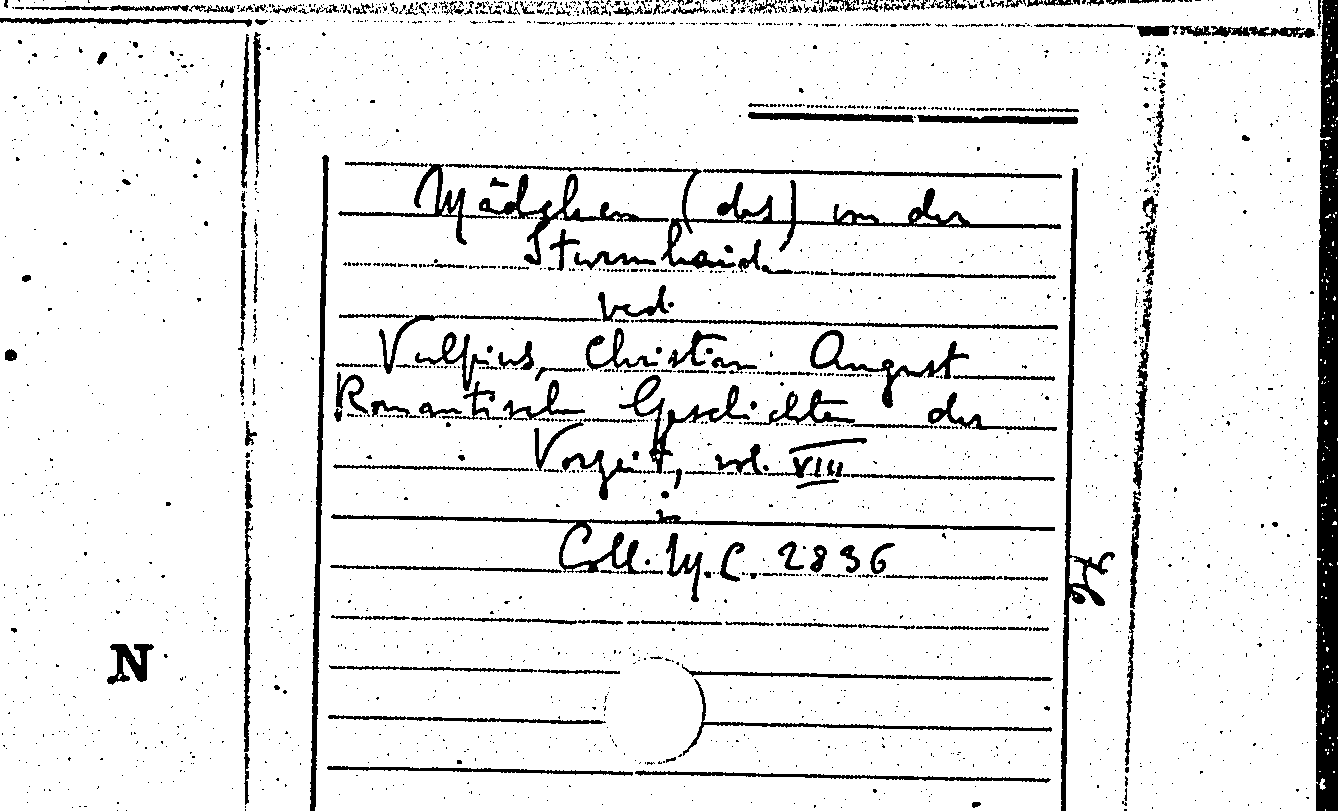 Mädchen (das) von der
Sturmhaide
ved.
Vulpius, Christian August
Romantische Geschichten der
Vorzeit, vol. VIII
in
Coll. M.C. 2836
N